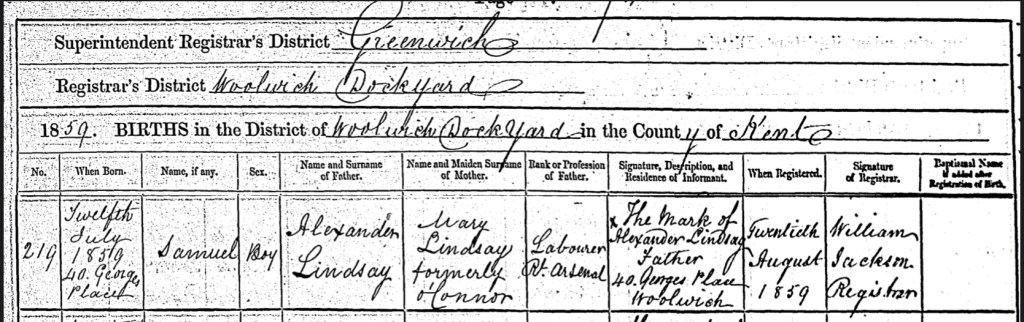 Superintendent Registrar's District Greenwich
Registrar's District Woolwich Dockyard
1859. BIRTHS in the District of Woolwich Dock Yard in the County of Kent
No.
When Born.
Name, if any.
Sex.
Name and Surname
of Father.
Name and Maiden Surname
of Mother.
Rank or Profession
of Father.
Signature, Description, and
Residence of Informant.
When Registered.
Signature
of Registrar.
Baptismal Name
if added after
Registration of Birth.
219
Twelfth
July
1859
40. Georges
Place
Samuel
Boy
Alexander
Lindsay
Mary
Lindsay
formerly
O'Connor
Labourer
Rl. Arsenal
X The Mark of
Alexander Lindsay
Father
40. Georges Place
Woolwich
Twentieth
August
1859
William
Jackson
Registrar